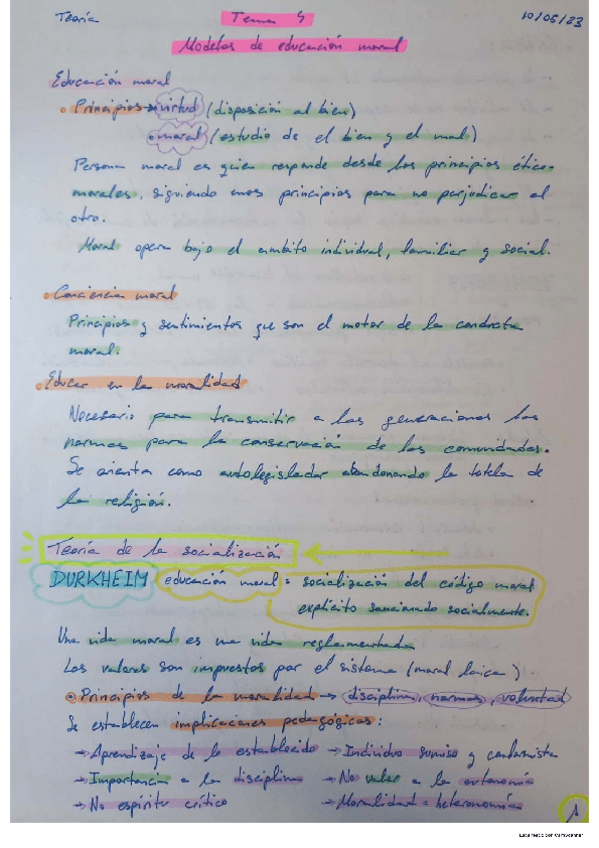 Teoría Tema 4 10/05/23
Modelos de educación moral
Educación moral
• Principios → virtud (disposición al bien)
moral (estudio de el bien y el mal)
Persona moral es quien responde desde los principios ético-
morales, siguiendo unos principios para no perjudicar al
otro.
Moral opera bajo el ámbito individual, familiar y social.
• Conciencia moral
Principios y sentimientos que son el motor de la conducta
moral.
• Educar en la moralidad
Necesario para transmitir a las generaciones las
normas para la conservación de las comunidades.
Se orienta como autolegislador abandonando la tutela de
la religión.
Teoría de la socialización
DURKHEIM educación moral = socialización del código moral
explícito sancionado socialmente.
Una vida moral es una vida reglamentada
Los valores son impuestos por el sistema (moral laica).
• Principios de la moralidad → disciplina, normas, voluntad
Se establecen implicaciones pedagógicas:
→ Aprendizaje de lo establecido → Individuo sumiso y conformista
→ Importancia a la disciplina → No valor a la autonomía
→ No espíritu crítico → Moralidad = heteronomía
1